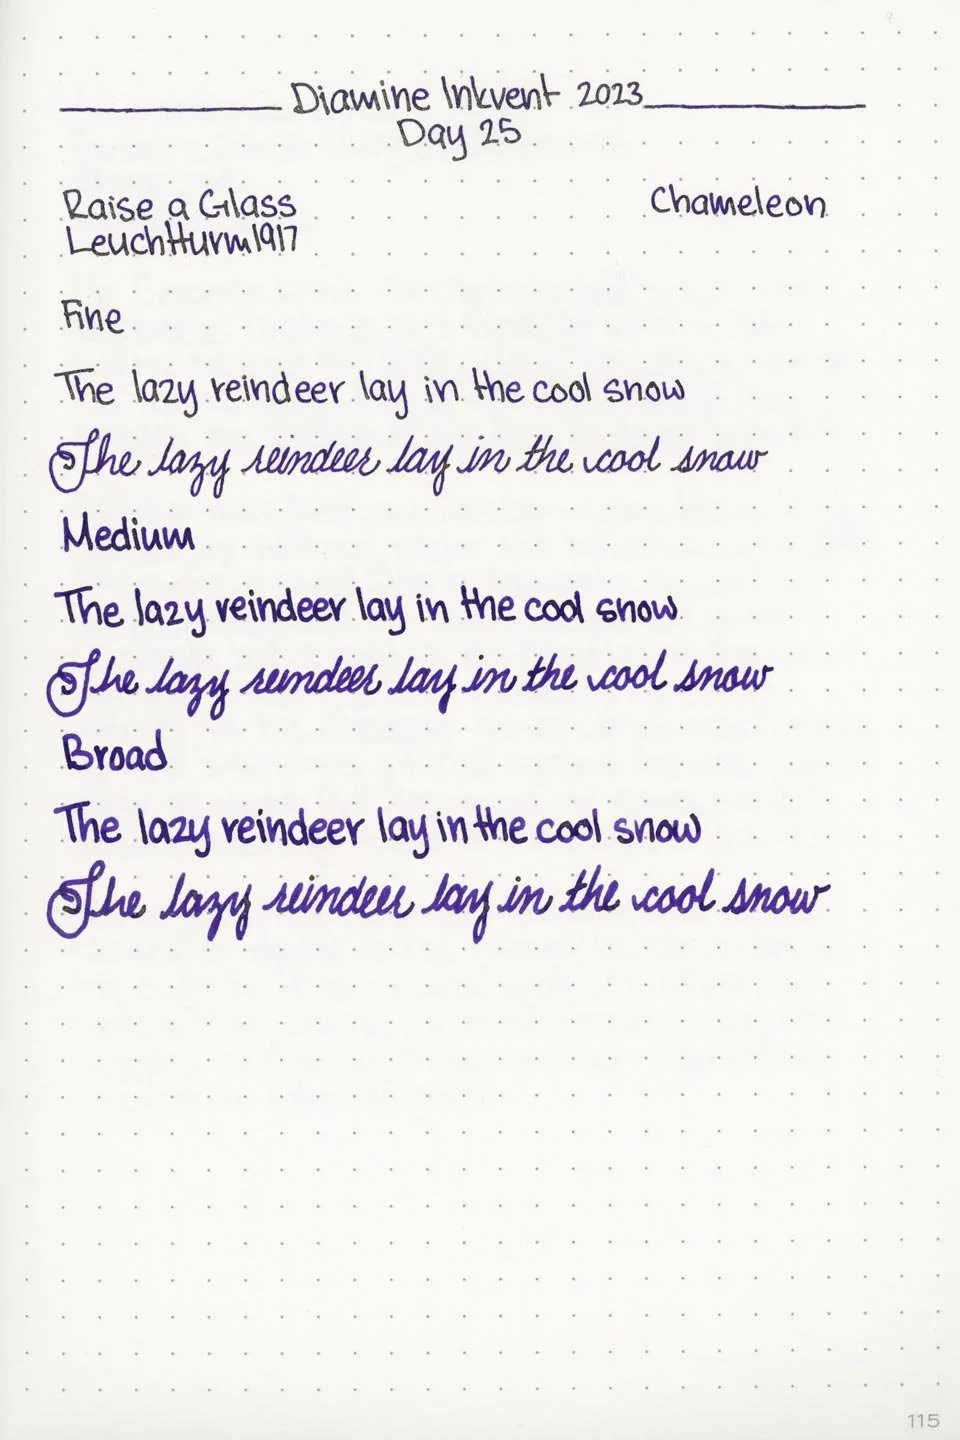 Diamine Inkvent 2023
Day 25
Raise a Glass Chameleon
Leuchtturm1917
Fine
The lazy reindeer lay in the cool snow
The lazy reindeer lay in the cool snow
Medium
The lazy reindeer lay in the cool snow
The lazy reindeer lay in the cool snow
Broad
The lazy reindeer lay in the cool snow
The lazy reindeer lay in the cool snow
115